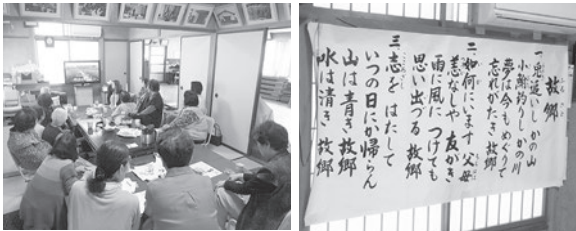 故郷
一、兎追いし かの山
小鮒釣りし かの川
夢は今も めぐりて
忘れがたき 故郷
二、如何にいます 父母
恙なしや 友がき
雨に風に つけても
思い出づる 故郷
三、志を はたして
いつの日にか帰らん
山は青き 故郷
水は清き 故郷